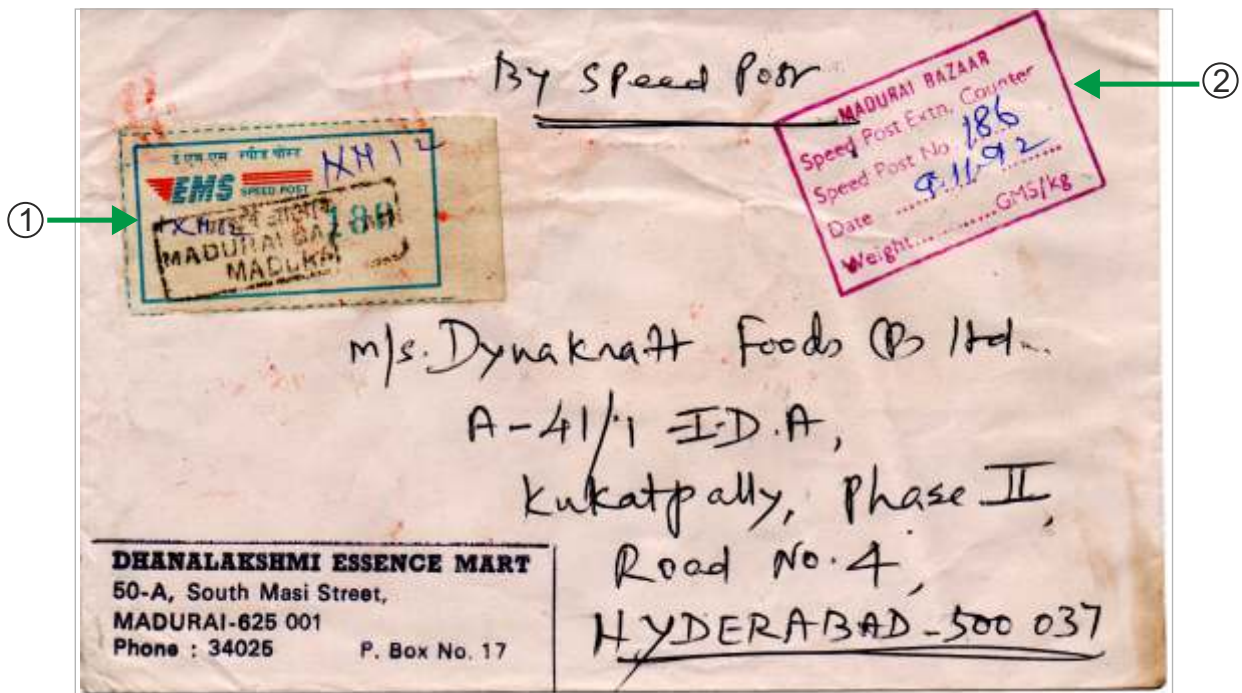 By Speed Post
②
MADURAI BAZAAR
Speed Post Extn. Counter
Speed Post No. 186
Date 9.11.92
Weight.............GMS/kg
ई एम एस स्पीड पोस्ट
EMS SPEED POST
①
MADURAI
m/s. Dynakraft Foods (P) ltd.
A-41/1 I.D.A,
Kukatpally, Phase II,
Road No. 4,
HYDERABAD-500 037
DHANALAKSHMI ESSENCE MART
50-A, South Masi Street,
MADURAI-625 001
Phone : 34026 P. Box No. 17